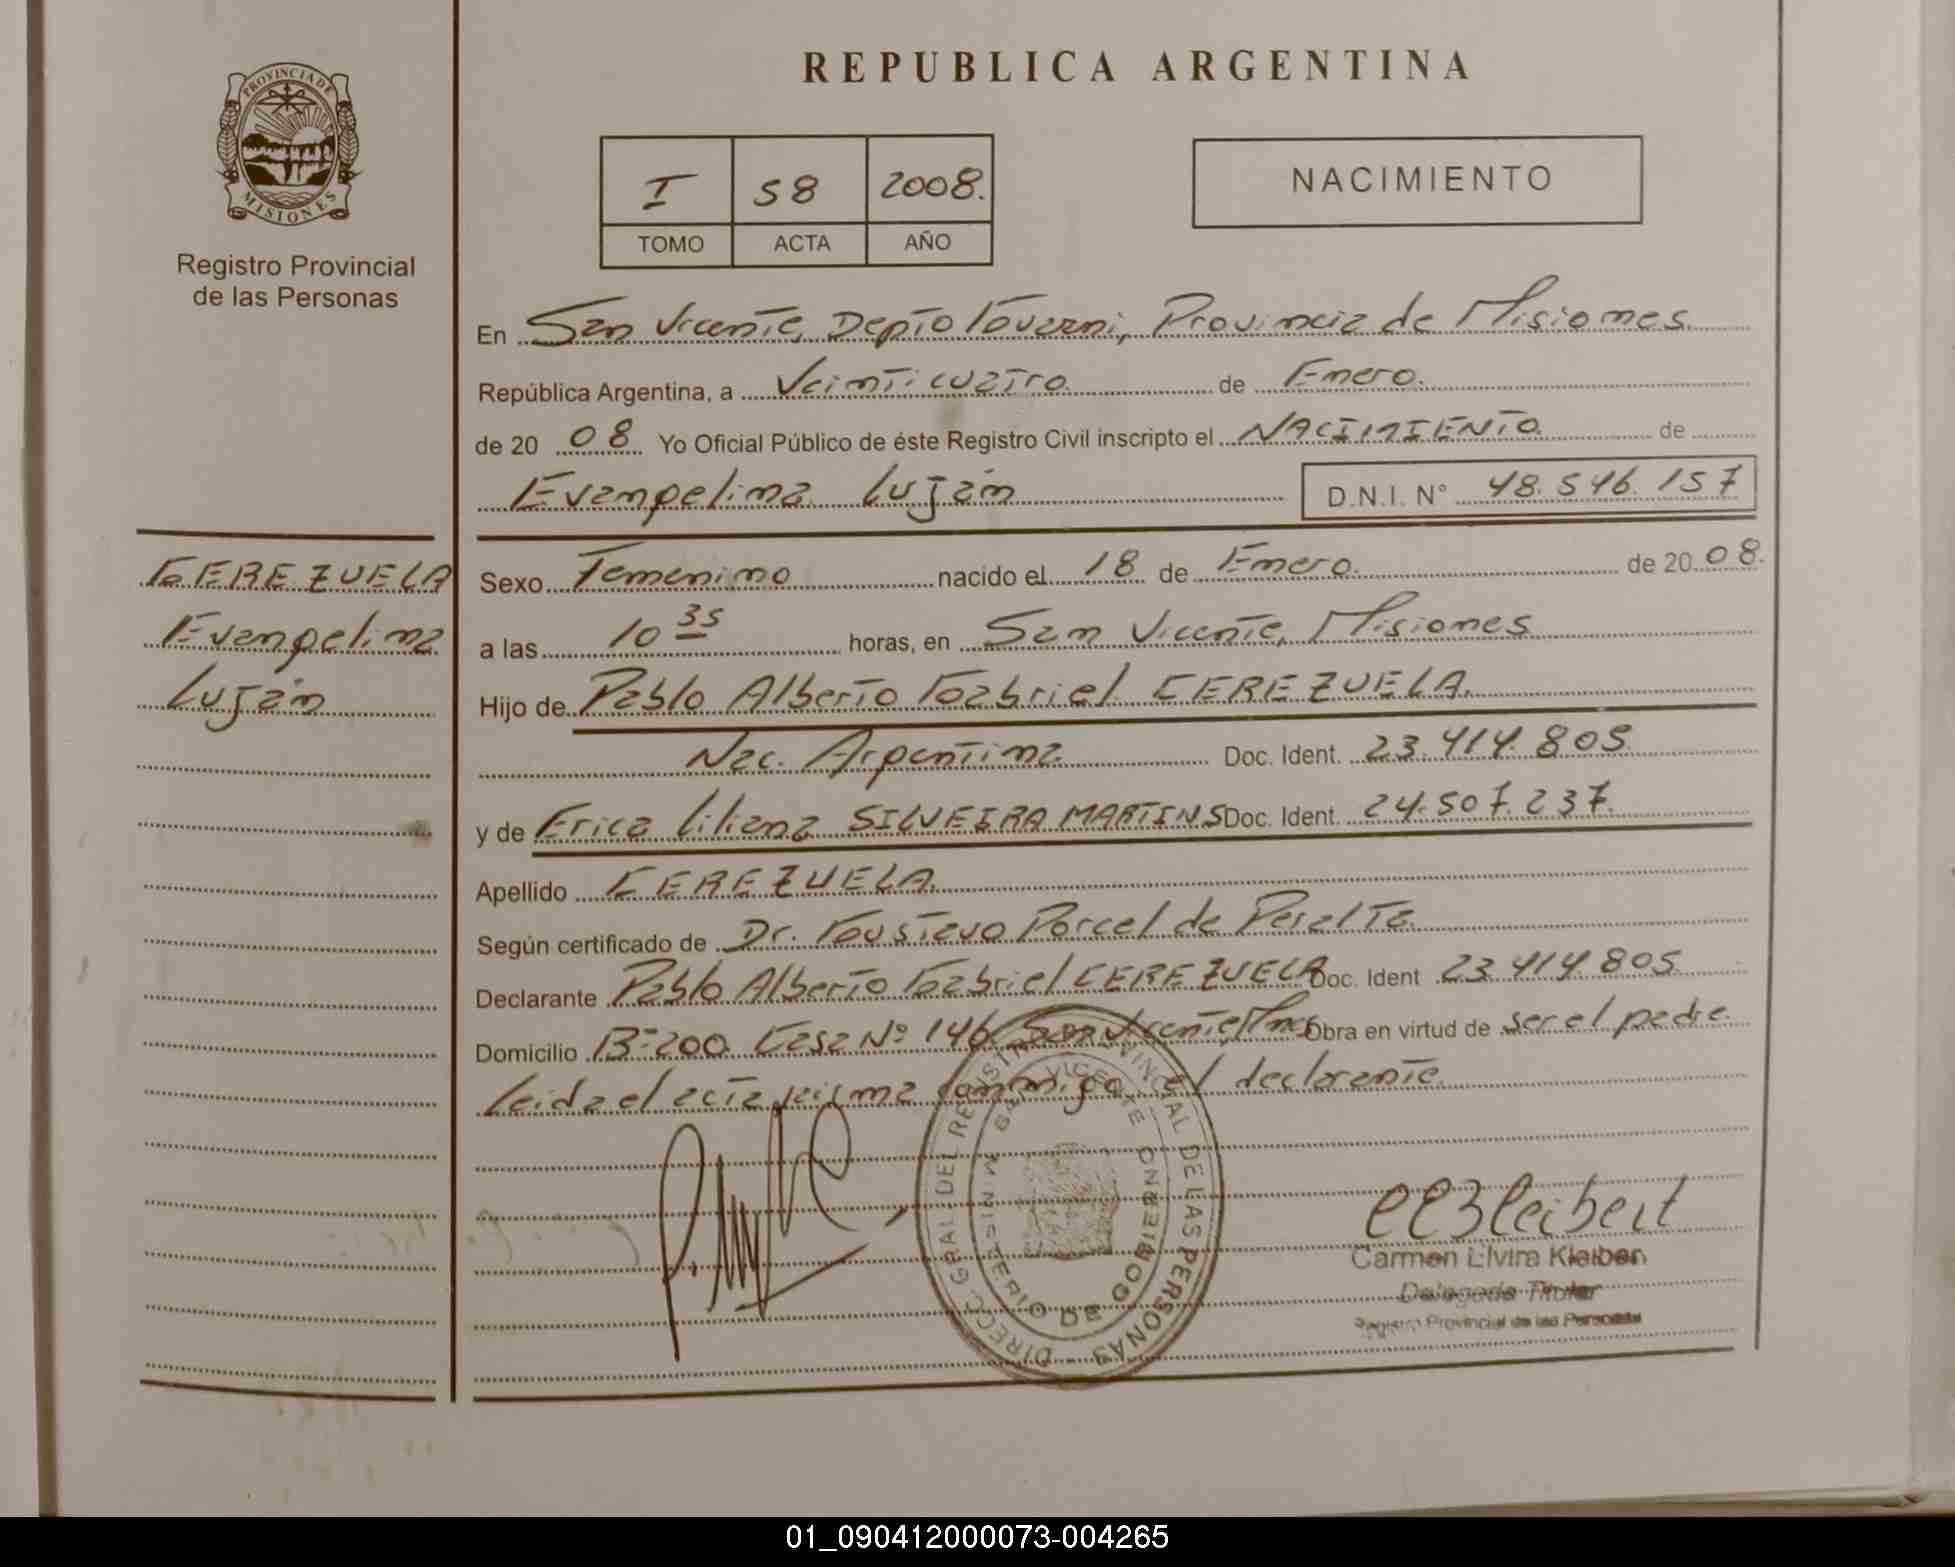 REPUBLICA ARGENTINA
PROVINCIA DE MISIONES
Registro Provincial
de las Personas
I 58 2008.
TOMO ACTA AÑO
NACIMIENTO
En San Vicente, Depto Guarani, Provincia de Misiones
República Argentina, a Veinticuatro de Enero.
de 20 08 Yo Oficial Público de éste Registro Civil inscripto el NACIMIENTO de
Evangelina Luján D.N.I. N° 48.546.157
CEREZUELA
Evangelina
Luján
Sexo Femenino nacido el 18 de Enero. de 20 08.
a las 10 35 horas, en San Vicente, Misiones
Hijo de Pablo Alberto Gabriel CEREZUELA.
Nac. Argentina Doc. Ident. 23.414.805
y de Erica Liliana SILVEIRA MARTINS Doc. Ident. 24.507.237.
Apellido CEREZUELA.
Según certificado de Dr. Gustavo Porcel de Peralta.
Declarante Pablo Alberto Gabriel CEREZUELA Doc. Ident 23 414 805
Domicilio B° 200 Casa N° 146 San Vicente, Mnes Obra en virtud de ser el padre.
Leida el acta firma conmigo el declarante.
DIRECC. GRAL. DEL REGISTRO PROVINCIAL DE LAS PERSONAS
SAN VICENTE
MINISTERIO DE GOBIERNO
Carmen Elvira Kleibert
Delegada Titular
Registro Provincial de las Personas
01_090412000073-004265